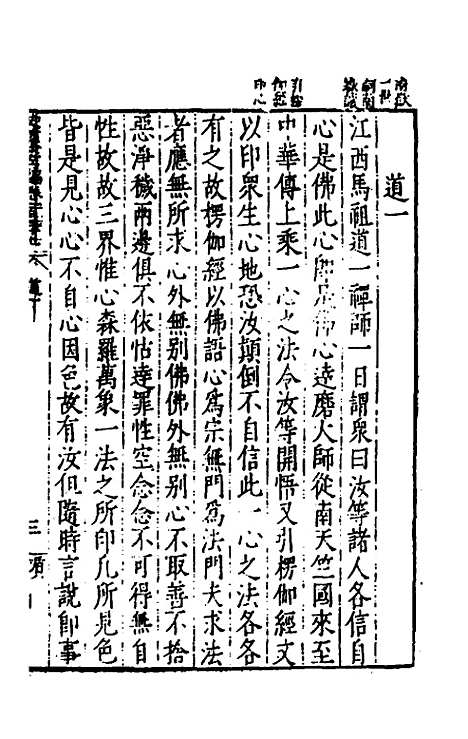 道一
江西馬祖道一禪師一日謂衆曰汝等諸人各信自
心是佛此心即是佛心達磨大師從南天竺國來至
中華傳上乗一心之法令汝等開悟又引楞伽經文
以印衆生心地恐汝顛倒不自信此一心之法各各
有之故楞伽經以佛語心爲宗無門爲法門夫求法
者應無所求心外無别佛佛外無别心不取善不捨
惡淨穢兩邊俱不依怙達罪性空念念不可得無自
性故故三界惟心森羅萬象一法之所印凡所見色
皆是見心心不自心因色故有汝但隨時言說即事